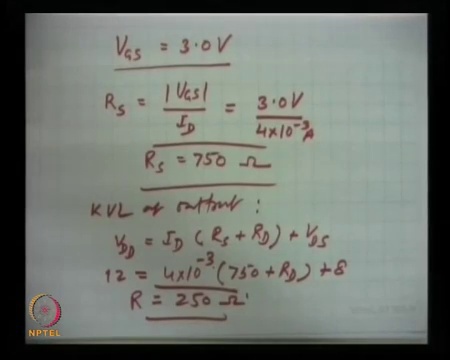 V_GS = 3.0 V
R_S = |V_GS| / I_D = 3.0 V / 4×10^-3 A
R_S = 750 Ω
KVL at output :
V_DD = I_D (R_S + R_D) + V_DS
12 = 4×10^-3 (750 + R_D) + 8
R = 250 Ω
NPTEL